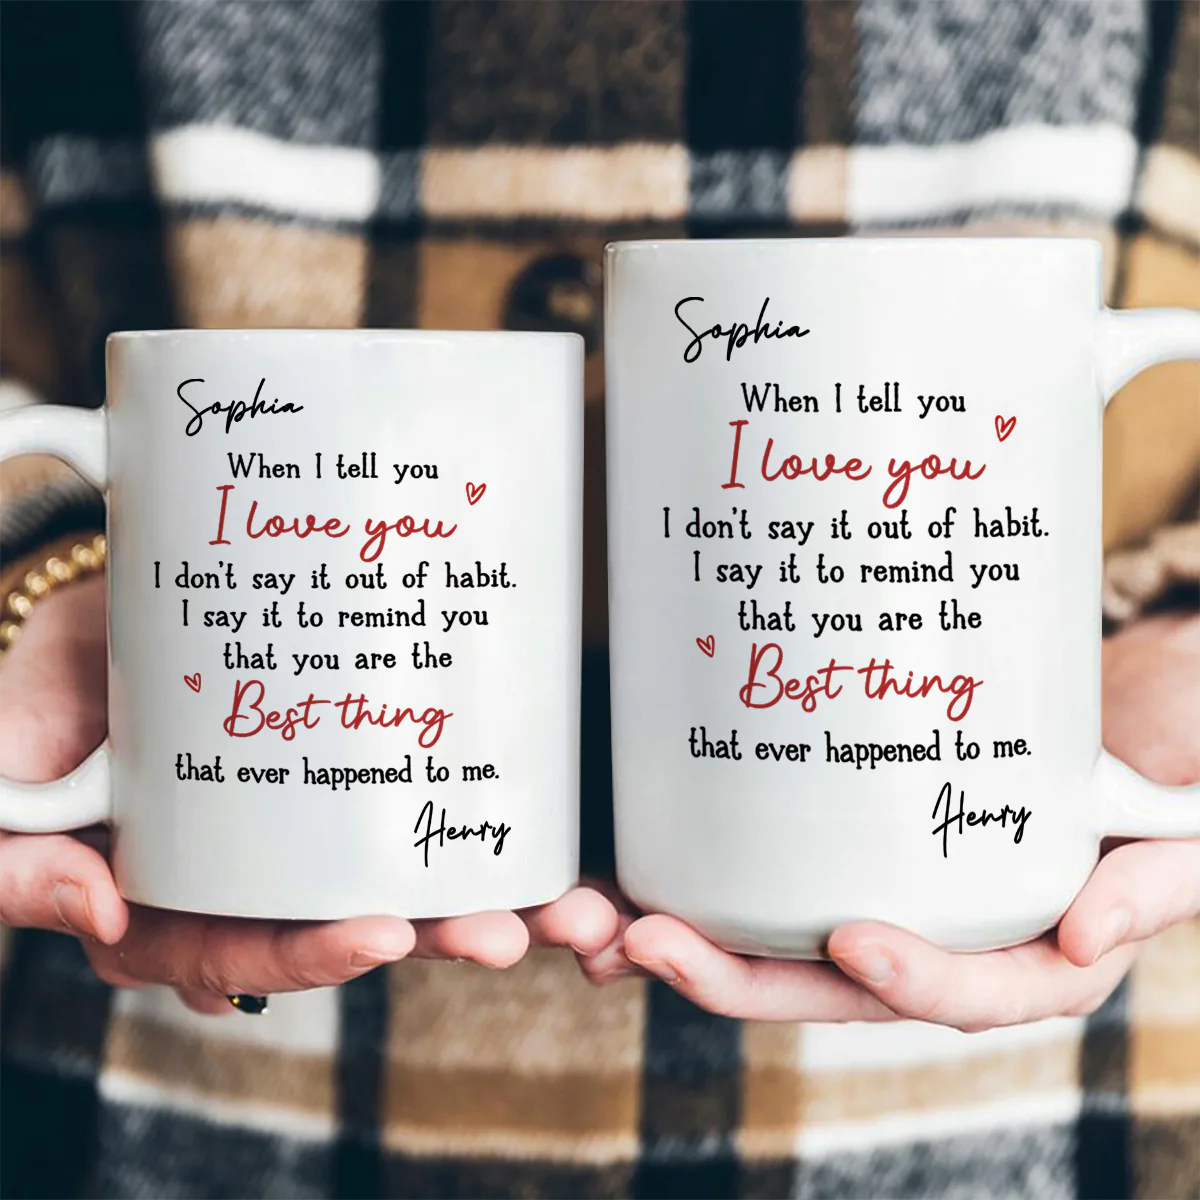 Sophia
When I tell you
I love you
I don't say it out of habit.
I say it to remind you
that you are the
Best thing
that ever happened to me.
Henry
Sophia
When I tell you
I love you
I don't say it out of habit.
I say it to remind you
that you are the
Best thing
that ever happened to me.
Henry